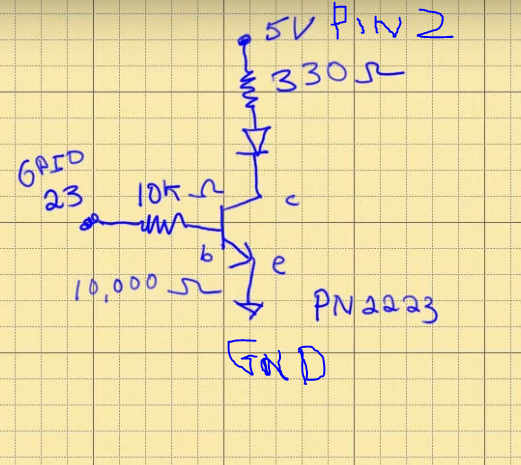 5V PIN 2
330Ω
GPIO
23
10K Ω
c
b
e
10,000 Ω
PN2223
GND